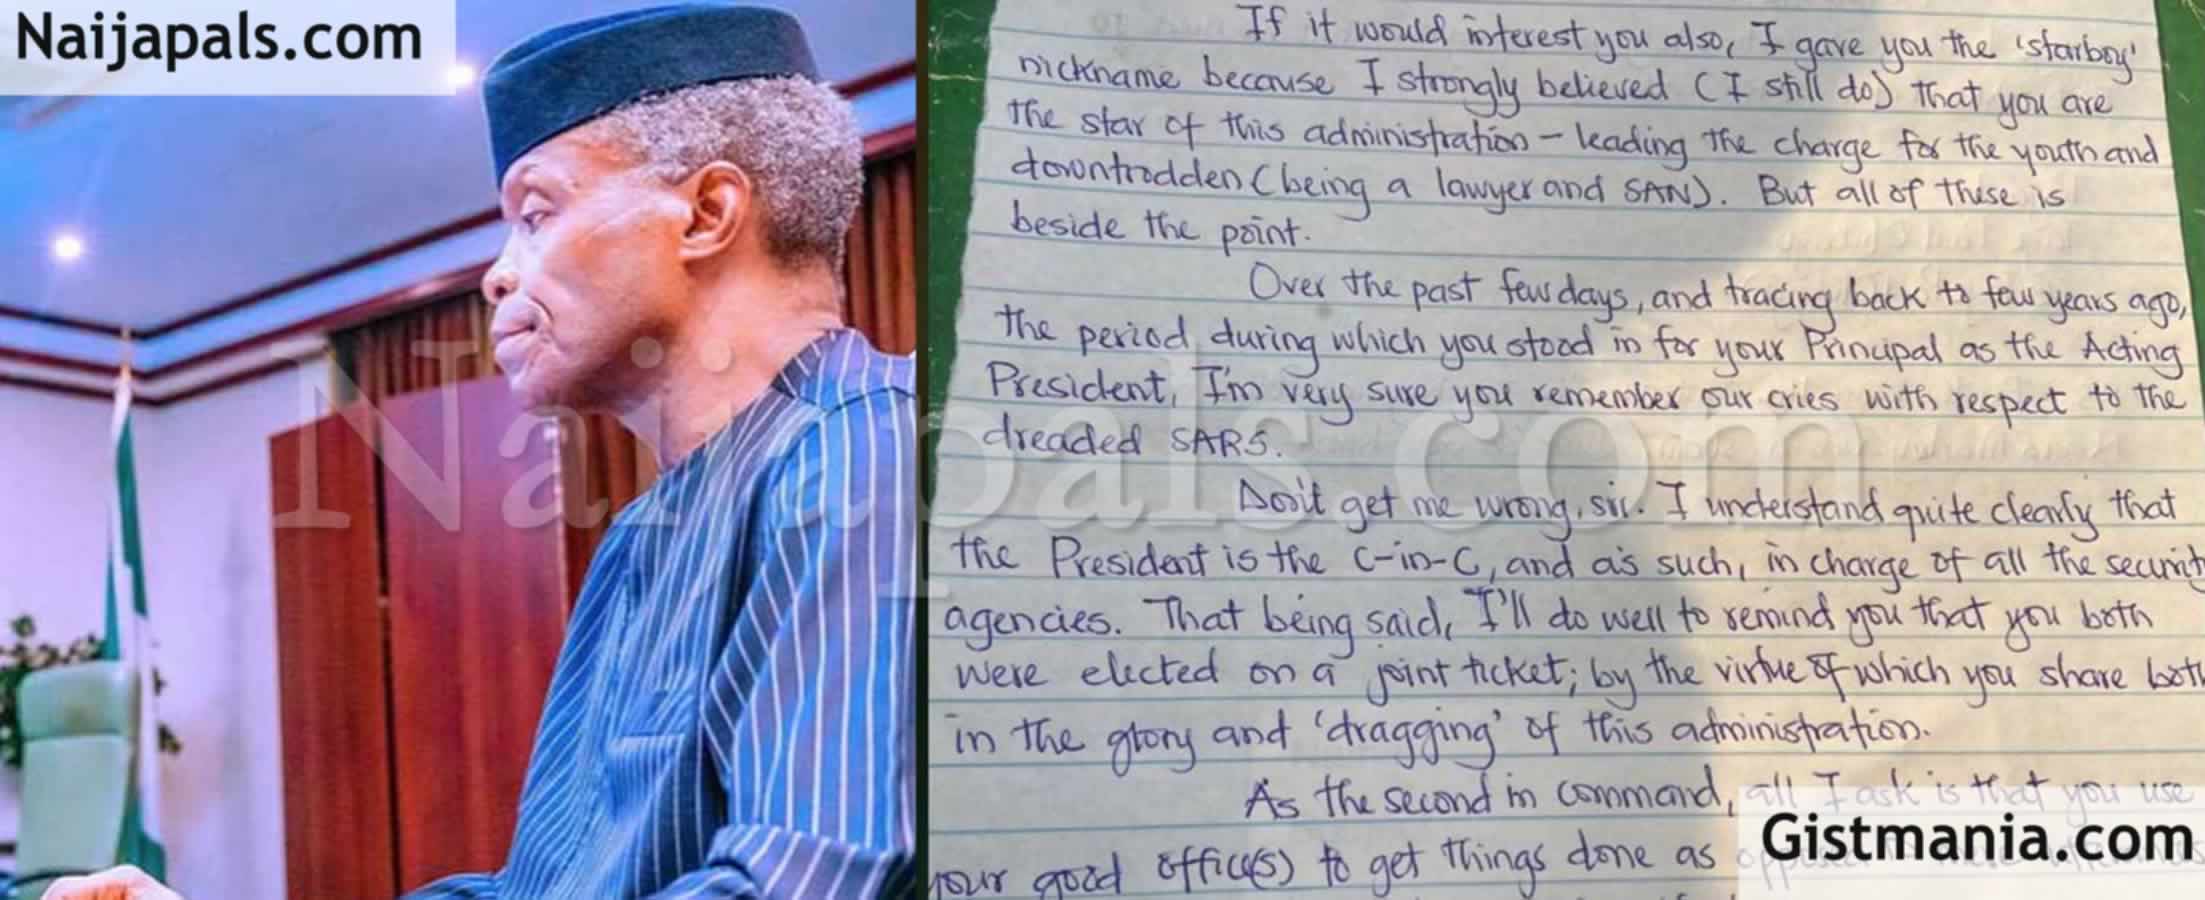 Naijapals.com
If it would interest you also, I gave you the 'starboy'
nickname because I strongly believed (I still do) that you are
the star of this administration - leading the charge for the youth and
downtrodden (being a lawyer and SAN). But all of these is
beside the point.
Over the past few days, and tracing back to few years ago,
the period during which you stood in for your Principal as the Acting
President, I'm very sure you remember our cries with respect to the
dreaded SARS.
Don't get me wrong, sir. I understand quite clearly that
the President is the C-in-C, and as such, in charge of all the security
agencies. That being said, I'll do well to remind you that you both
were elected on a joint ticket; by the virtue of which you share both
in the glory and 'dragging' of this administration.
As the second in command, all I ask is that you use
your good office(s) to get things done as
Naijapals.com
Gistmania.com